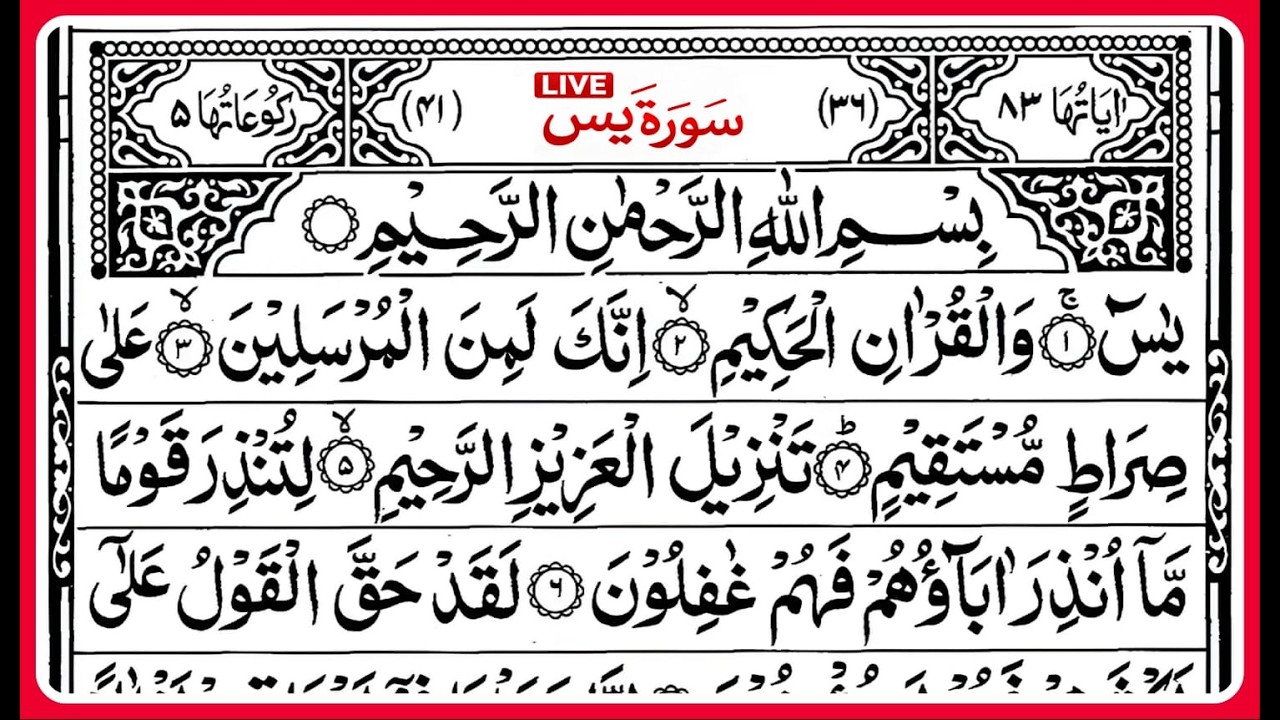 اٰيَاتُهَا ٨٣ (٣٦) LIVE سَوَرَة يس (٤١) رُكُوعَاتُهَا ٥
بِسْمِ اللّٰهِ الرَّحْمٰنِ الرَّحِيْمِ
يٰسٓ ۚ‏﴿١﴾ وَالْقُرْاٰنِ الْحَكِيْمِ ۙ‏﴿٢﴾ اِنَّكَ لَمِنَ الْمُرْسَلِيْنَ ۙ‏﴿٣﴾ عَلٰى
صِرَاطٍ مُّسْتَقِيْمٍ ؕ‏﴿٤﴾ تَنْزِيْلَ الْعَزِيْزِ الرَّحِيْمِ ۙ‏﴿٥﴾ لِتُنْذِرَ قَوْمًا
مَّاۤ اُنْذِرَ اٰبَآؤُهُمْ فَهُمْ غٰفِلُوْنَ ﴿٦﴾ لَقَدْ حَقَّ الْقَوْلُ عَلٰٓى